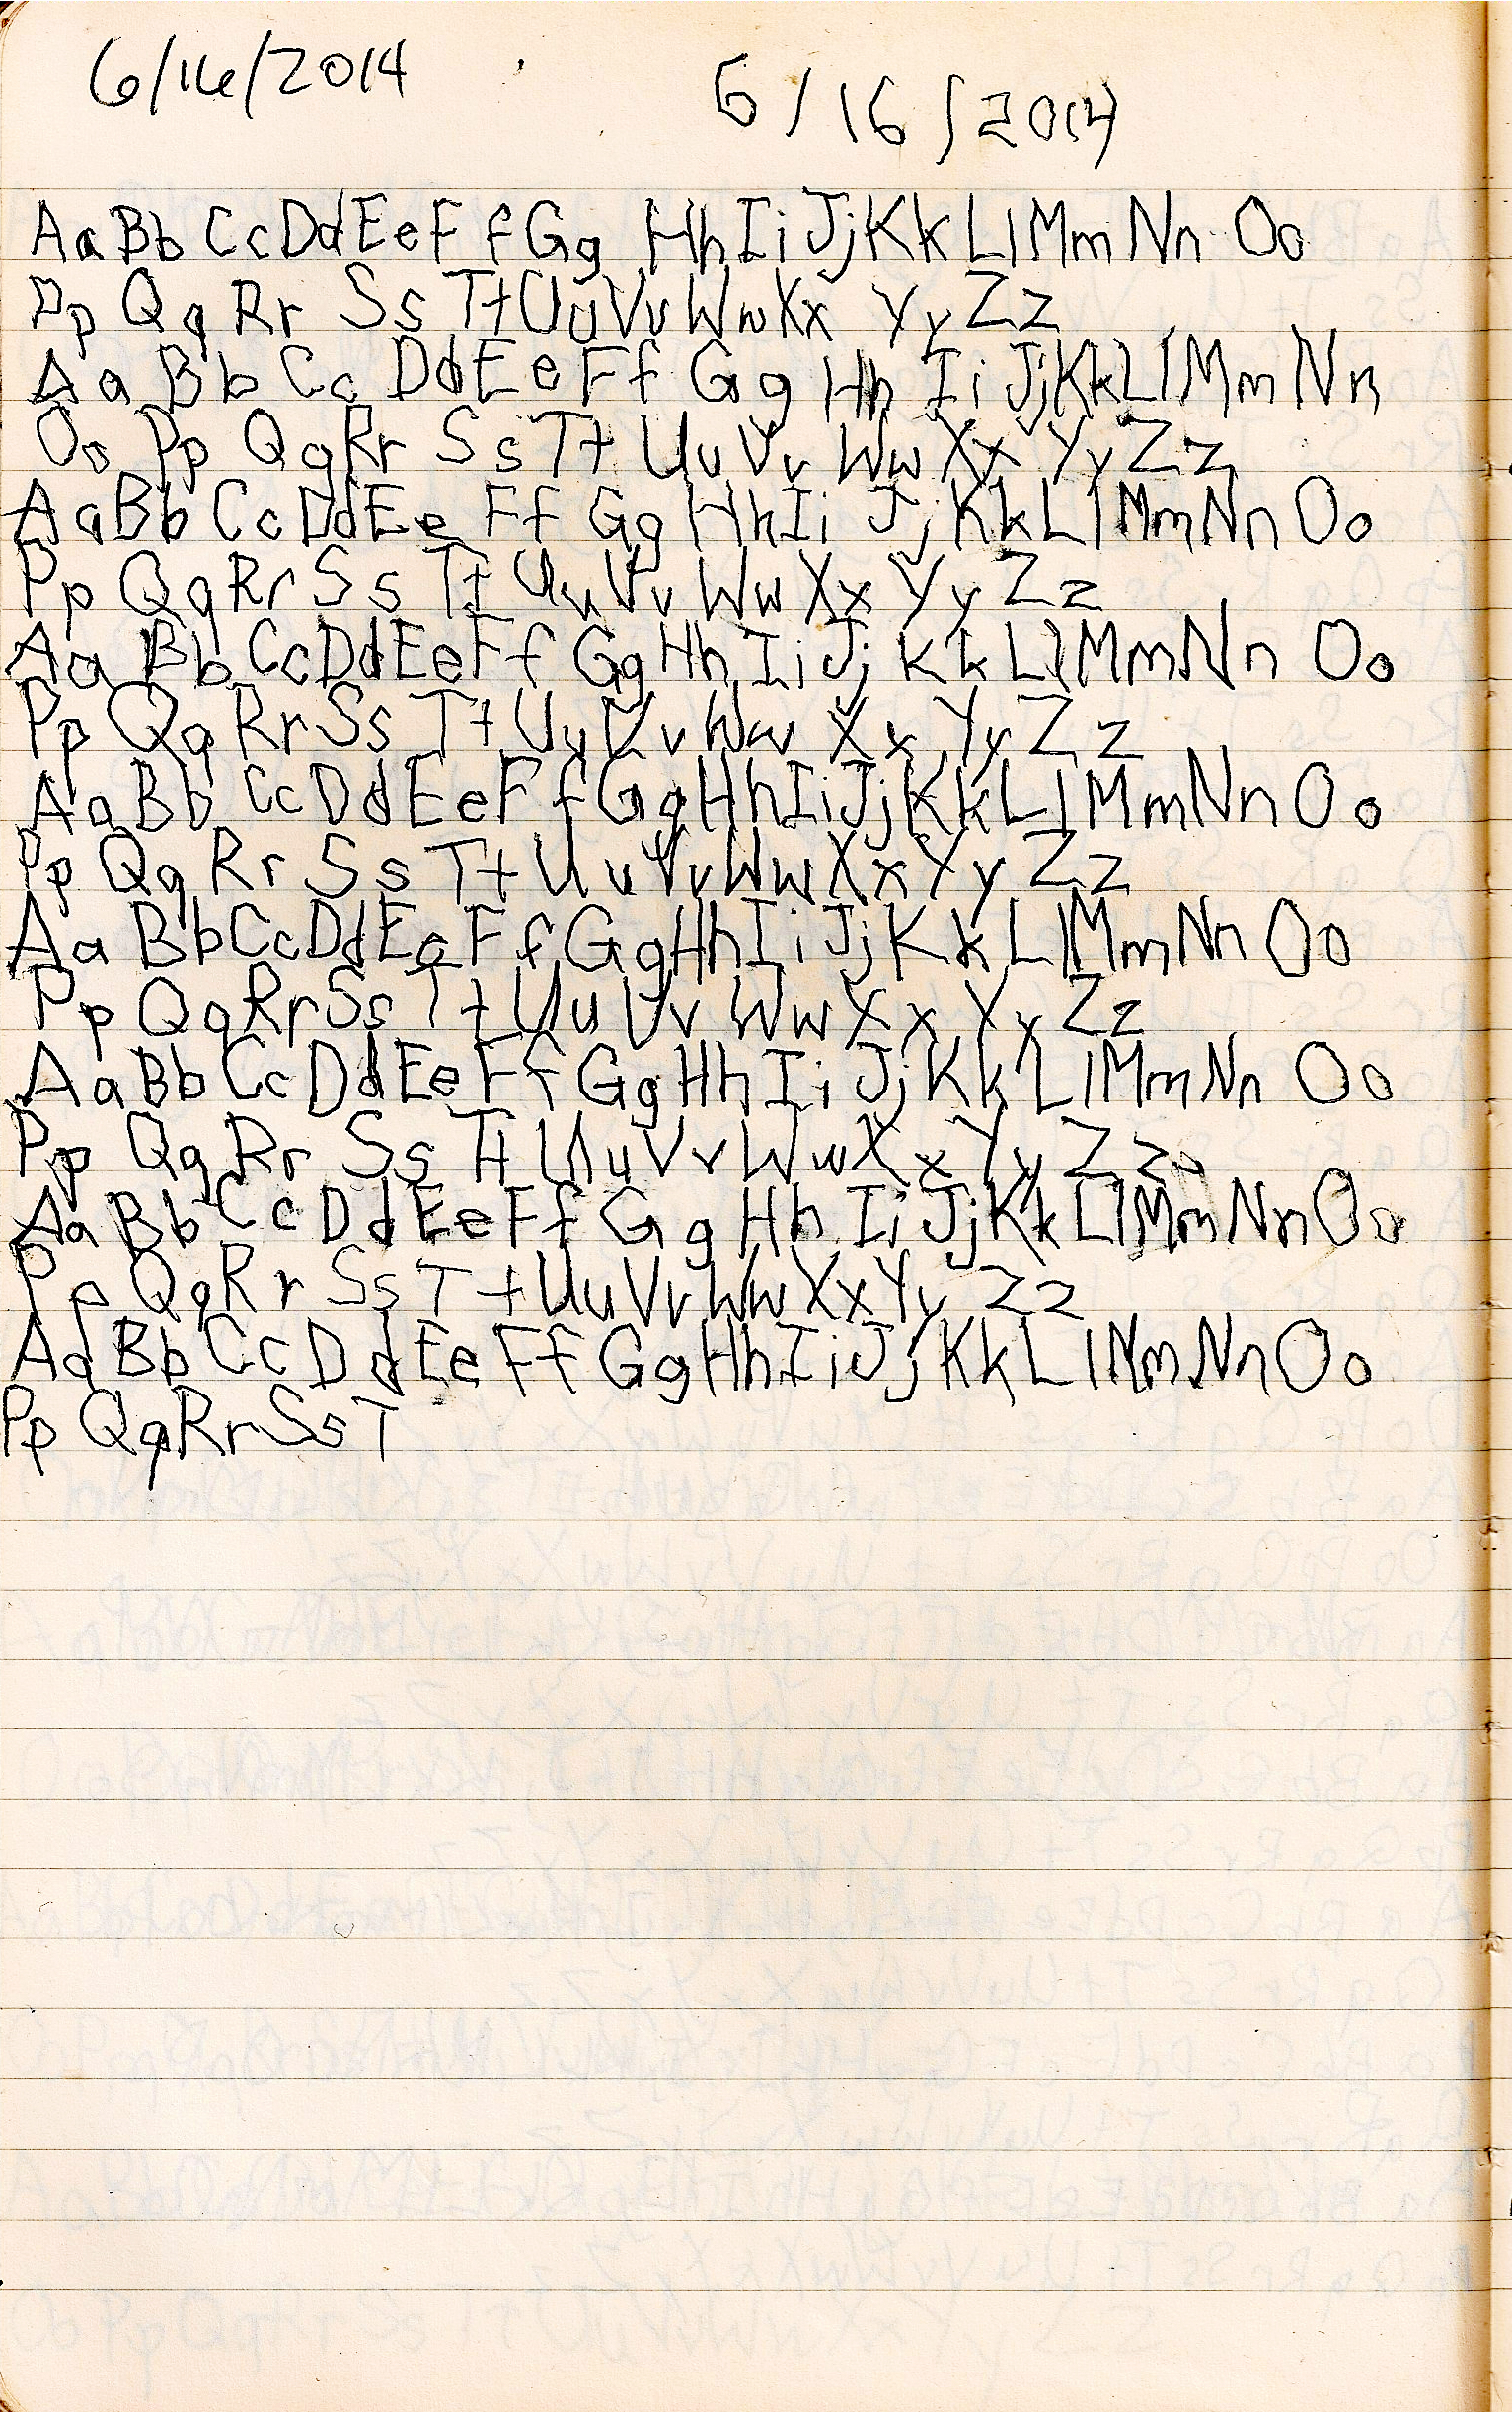 6/16/2014 6/16/2014
Aa Bb Cc Dd Ee Ff Gg Hh Ii Jj Kk Ll Mm Nn Oo
Pp Qq Rr Ss Tt Uu Vv Ww Xx Yy Zz
Aa Bb Cc Dd Ee Ff Gg Hh Ii Jj Kk Ll Mm Nn
Oo Pp Qq Rr Ss Tt Uu Vv Ww Xx Yy Zz
Aa Bb Cc Dd Ee Ff Gg Hh Ii Jj Kk Ll Mm Nn Oo
Pp Qq Rr Ss Tt Uu Vv Ww Xx Yy Zz
Aa Bb Cc Dd Ee Ff Gg Hh Ii Jj Kk Ll Mm Nn Oo
Pp Qq Rr Ss Tt Uu Vv Ww Xx Yy Zz
Aa Bb Cc Dd Ee Ff Gg Hh Ii Jj Kk Ll Mm Nn Oo
Pp Qq Rr Ss Tt Uu Vv Ww Xx Yy Zz
Aa Bb Cc Dd Ee Ff Gg Hh Ii Jj Kk Ll Mm Nn Oo
Pp Qq Rr Ss Tt Uu Vv Ww Xx Yy Zz
Aa Bb Cc Dd Ee Ff Gg Hh Ii Jj Kk Ll Mm Nn Oo
Pp Qq Rr Ss Tt Uu Vv Ww Xx Yy Zz
Aa Bb Cc Dd Ee Ff Gg Hh Ii Jj Kk Ll Mm Nn Oo
Pp Qq Rr Ss Tt Uu Vv Ww Xx Yy Zz
Aa Bb Cc Dd Ee Ff Gg Hh Ii Jj Kk Ll Mm Nn Oo
Pp Qq Rr Ss T